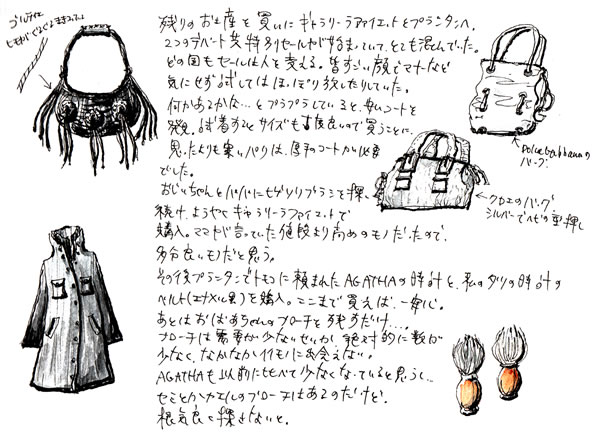 ゴルチエ
ヒモがぐるぐるまきみたい
残りのお土産を買いにギャラリーラファイエットとプランタンへ。
2つのデパート共特別セールが始まっていて、とても混んでいた。
どの国もセールは人を変える。皆すごい顔でマナーなど
気にせず試してはほっぽり放したりしていた。
何かあるかな…とプラプラしていると、安いコートを
発見。試着するとサイズも丁度良いので買うことに。
思ったよりも寒いパリは、厚手のコートが必要
でした。
おじいちゃんとパパにもゲリリプランで探し
続け、ようやくギャラリーラファイエットで
購入。ママが言っていた値段より高めのモノだったので、
多分良いモノだと思う。
その後プランタンでトモコに頼まれたAGATHAの時計と、私のダリの時計の
ベルト(エナメル黒)を購入。ここまで買えば、一安心。
あとはおばあちゃんのブローチを残すだけ…。
ブローチは需要が少ないせいか、絶対的に数が
少なく、なかなかイイモノに出会えない。
AGATHAも以前に比べて少なくなっていると思うし…
セミとかカエルのブローチはあるのだけど。
根気良く探さないと。
Dolce&Gabbanaの
バッグ。
クロエのバッグ
シルバーでヘビの型押し